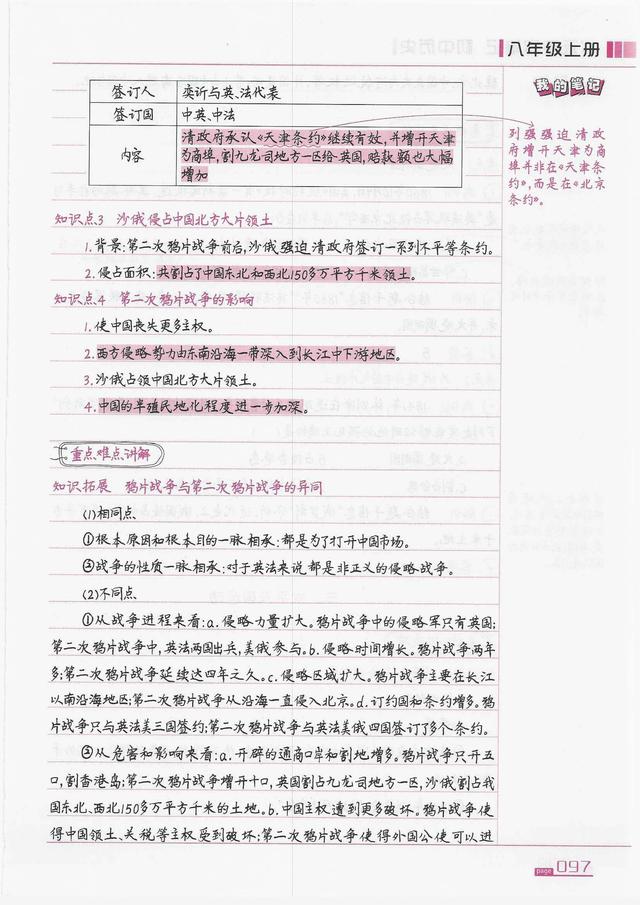 八年级上册
我的笔记
签订人 奕䜣与英、法代表
签订国 中英、中法
内容 清政府承认《天津条约》继续有效,并增开天津
为商埠,割九龙司地方一区给英国,赔款额也大幅
增加
列强强迫清政
府增开天津为商
埠并非在《天津条
约》,而是在《北京
条约》。
知识点3 沙俄侵占中国北方大片领土
1.背景:第二次鸦片战争前后,沙俄强迫清政府签订一系列不平等条约。
2.侵占面积:共割占了中国东北和西北150多万平方千米领土。
知识点4 第二次鸦片战争的影响
1.使中国丧失更多主权。
2.西方侵略势力由东南沿海一带深入到长江中下游地区。
3.沙俄占领中国北方大片领土。
4.中国的半殖民地化程度进一步加深。
重点、难点、讲解
知识拓展 鸦片战争与第二次鸦片战争的异同
(1)相同点
①根本原因和根本目的一脉相承:都是为了打开中国市场。
②战争的性质一脉相承:对于英法来说都是非正义的侵略战争。
(2)不同点
①从战争进程来看:a.侵略力量扩大。鸦片战争中的侵略军只有英国;
第二次鸦片战争中,英法两国出兵,美俄参与。b.侵略时间增长。鸦片战争两年
多;第二次鸦片战争延续达四年之久。c.侵略区域扩大。鸦片战争主要在长江
以南沿海地区;第二次鸦片战争从沿海一直侵入北京。d.订约国和条约增多。鸦
片战争只与英法美三国签约;第二次鸦片战争与英法美俄四国签订了多个条约。
②从危害和影响来看:a.开辟的通商口岸和割地增多。鸦片战争只开五
口,割香港岛;第二次鸦片战争增开十口,英国割占九龙司地方一区,沙俄割占我
国东北、西北150多万平方千米的土地。b.中国主权遭到更多破坏。鸦片战争使
得中国领土、关税等主权受到破坏;第二次鸦片战争使得外国公使可以进
page 097